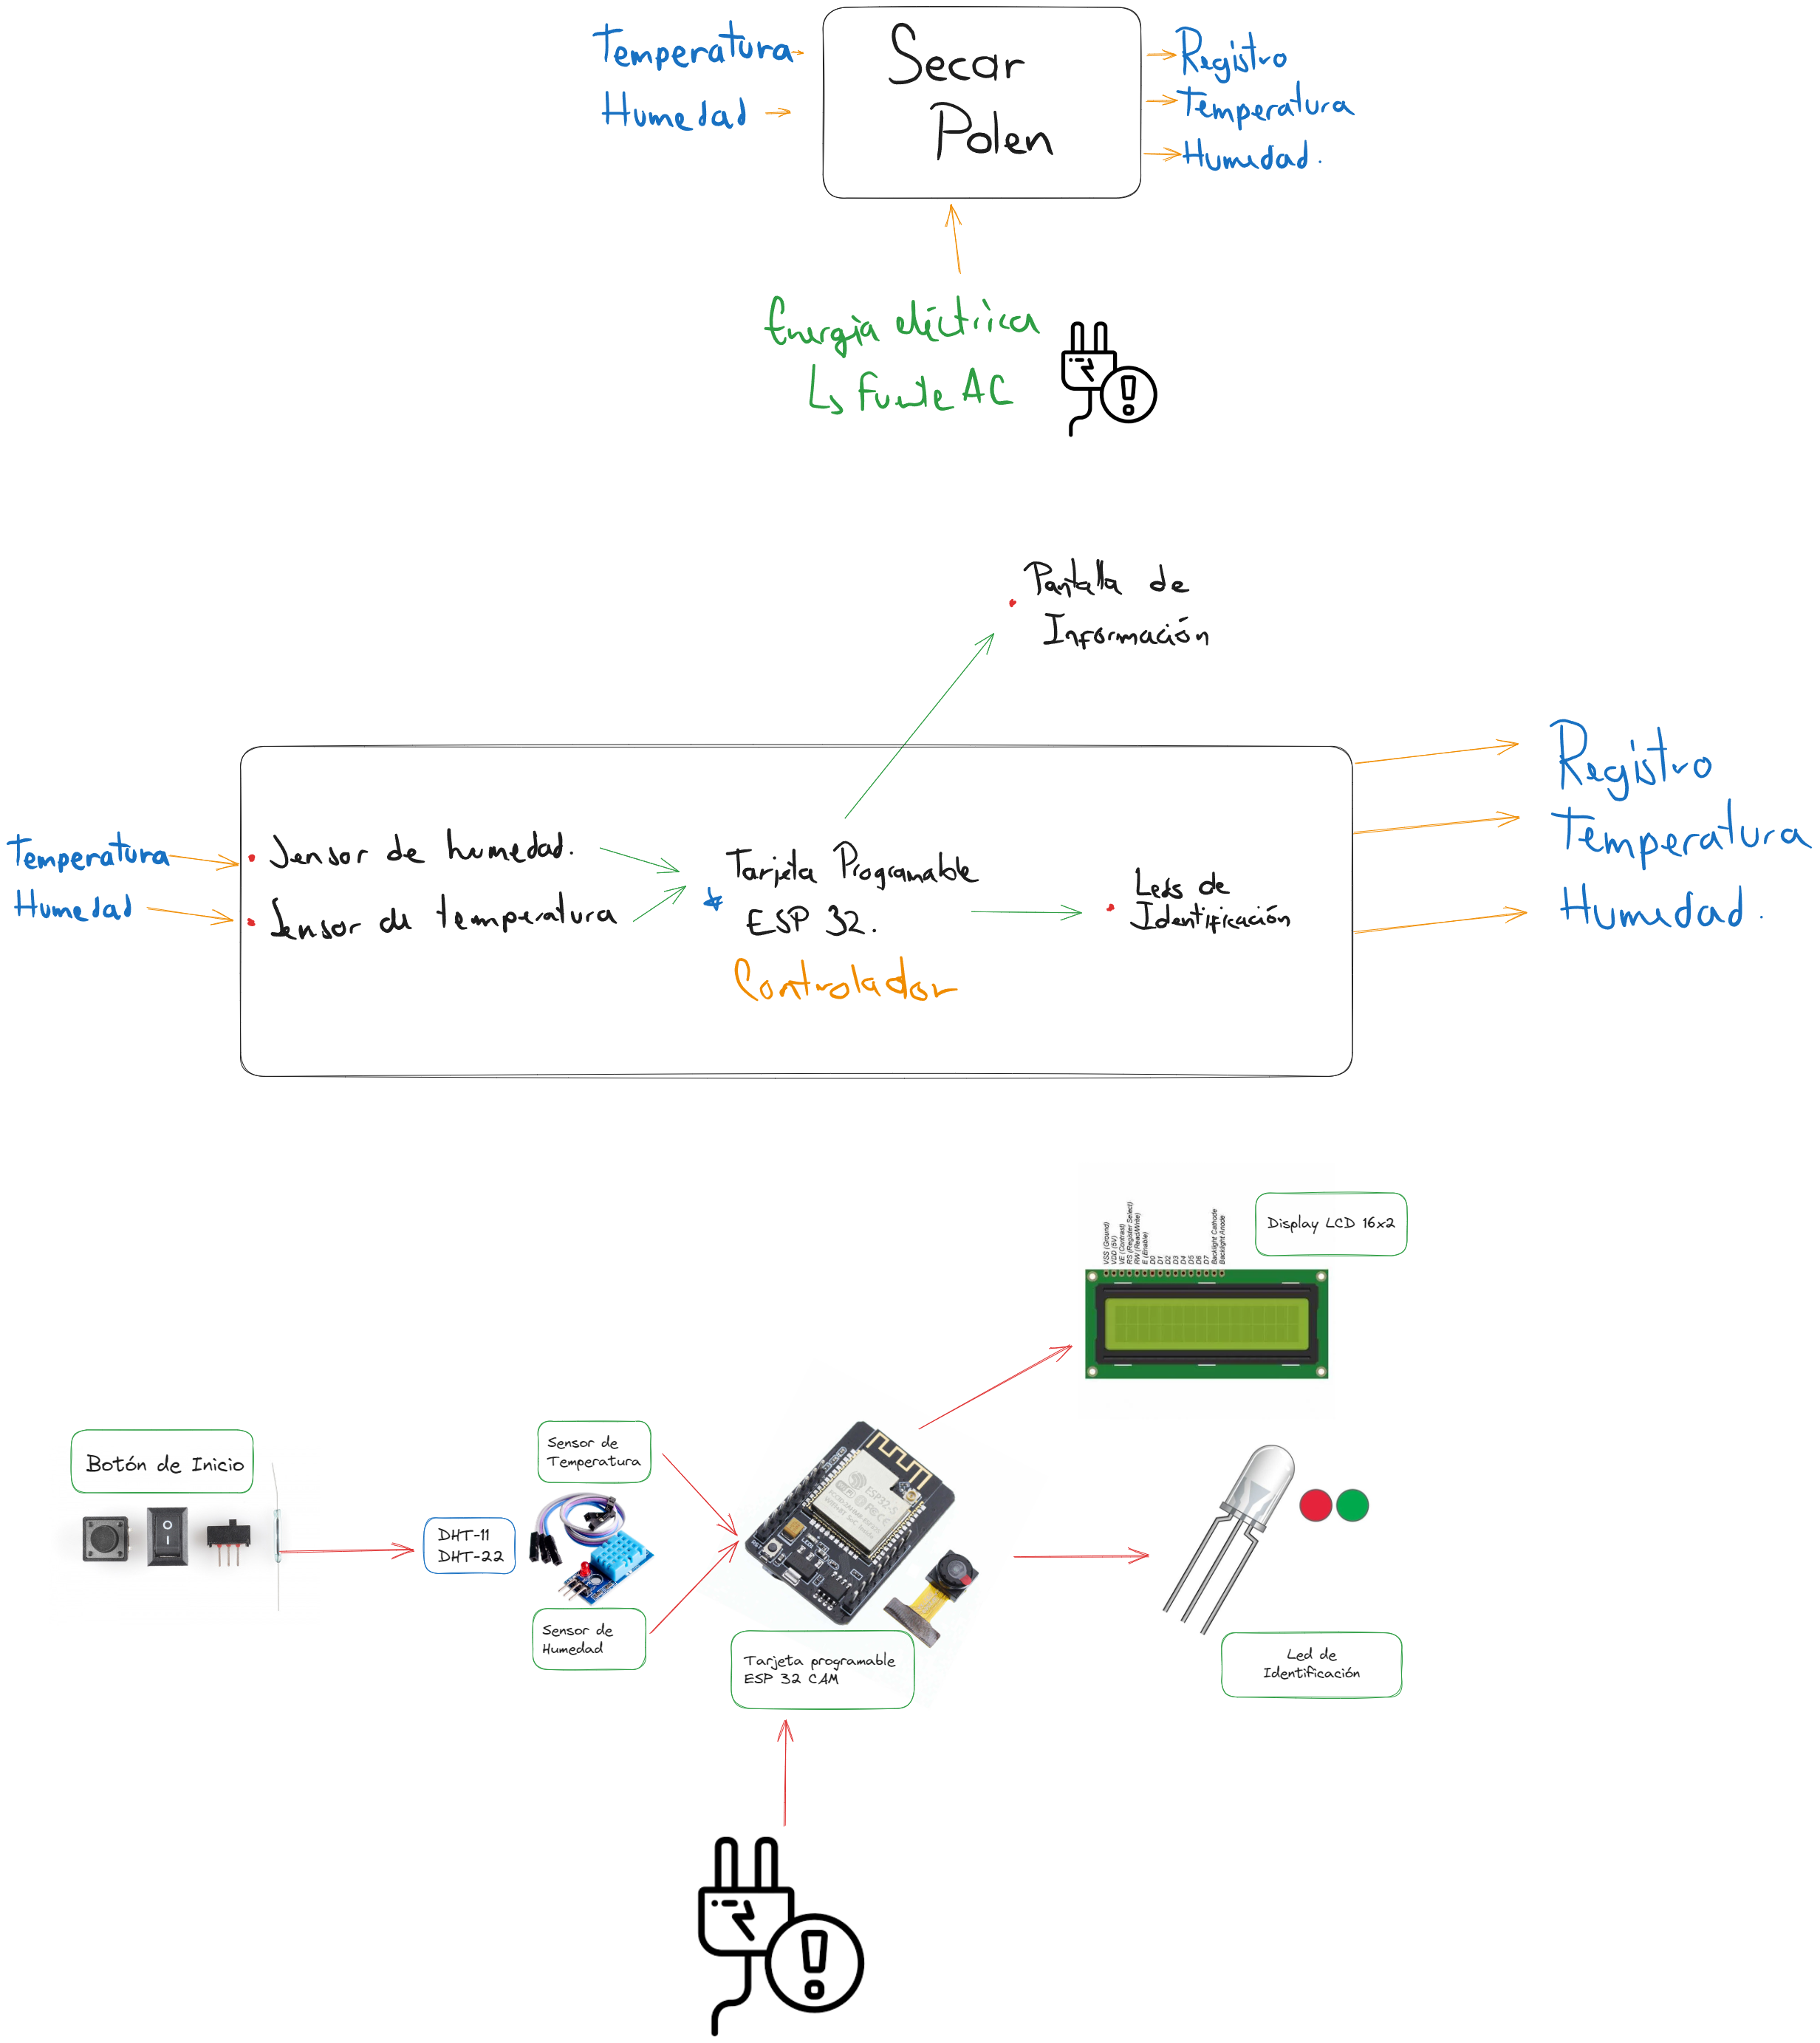 Temperatura
Humedad
Secar
Polen
Registro
Temperatura
Humedad.
Energía eléctrica
Ls Fuente AC
Pantalla de
Información
Temperatura
Humedad
Sensor de humedad.
Sensor de temperatura
Tarjeta Programable
ESP 32.
Controlador
Leds de
Identificación
Registro
Temperatura
Humedad.
VSS (Ground)
VDD (5V)
VE (Contrast)
RS (Register Select)
RW (Read/Write)
E (Enable)
D0
D1
D2
D3
D4
D5
D6
D7
Backlight Cathode
Backlight Anode
Display LCD 16x2
Botón de Inicio
DHT-11
DHT-22
Sensor de
Temperatura
Sensor de
Humedad
ESP32-S
Tarjeta programable
ESP 32 CAM
Led de
Identificación